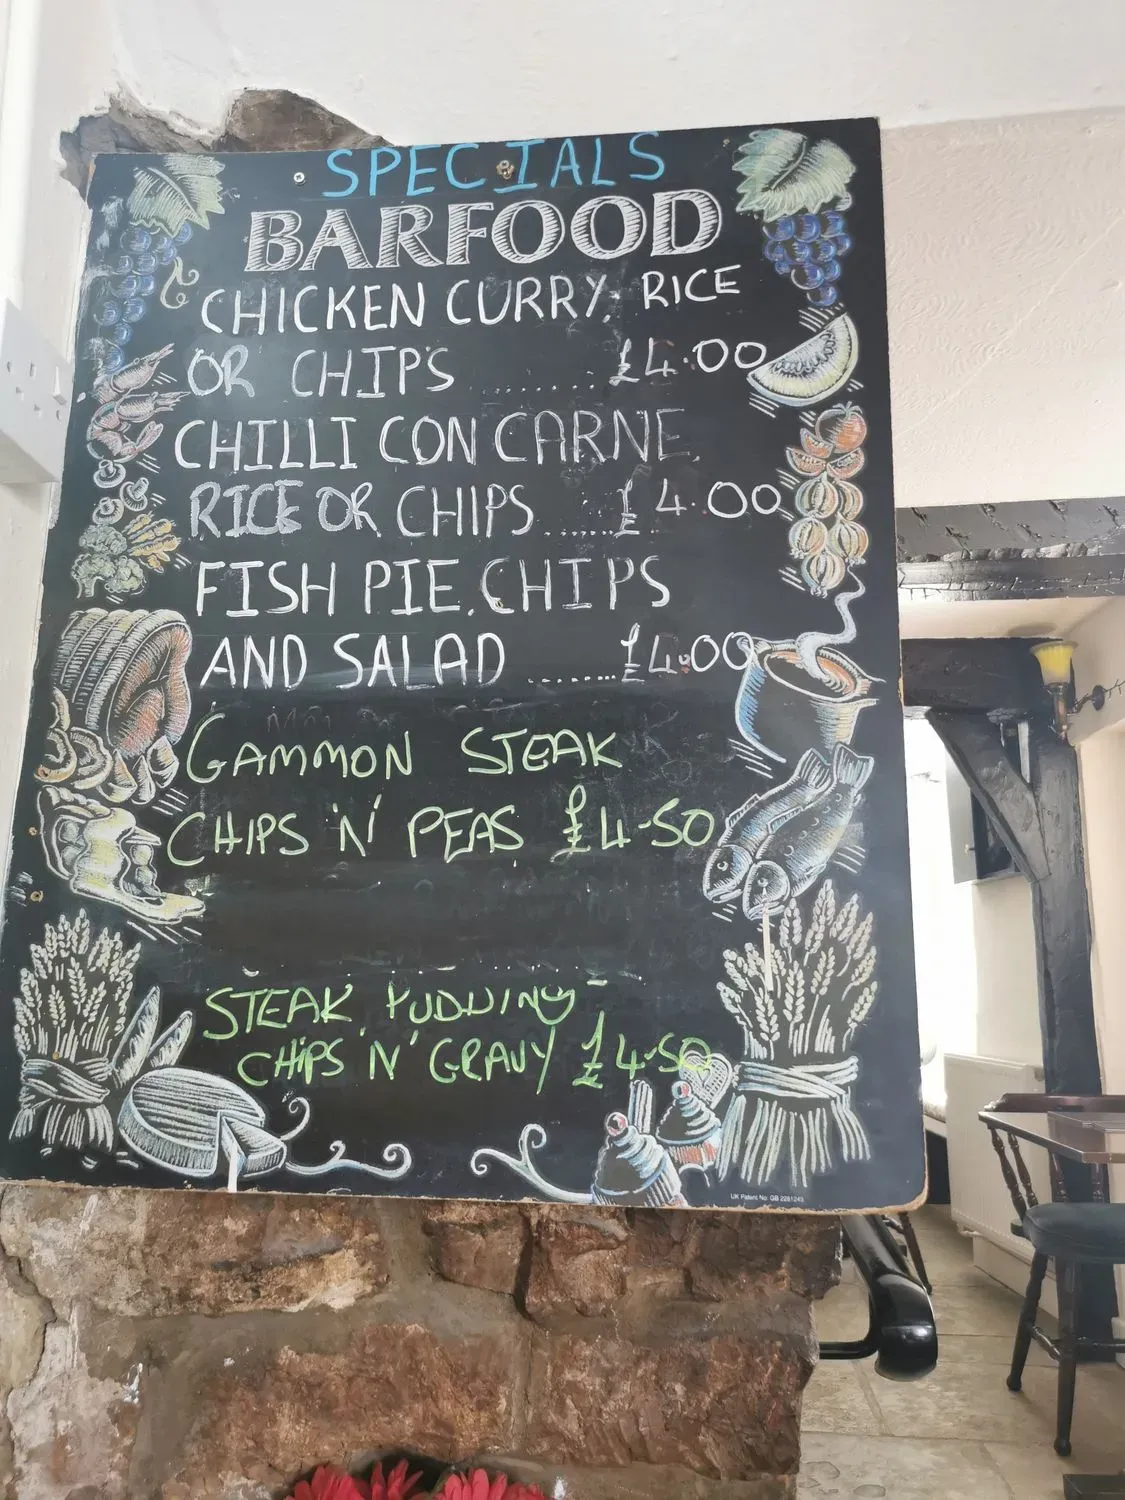 SPECIALS
BARFOOD
CHICKEN CURRY, RICE
OR CHIPS ......... £4.00
CHILLI CON CARNE,
RICE OR CHIPS ....... £4.00
FISH PIE, CHIPS
AND SALAD ........ £4.00
GAMMON STEAK
CHIPS 'N' PEAS £4-50
STEAK PUDDING
CHIPS 'N' GRAVY £4-50
UK Patent No: GB 2281243